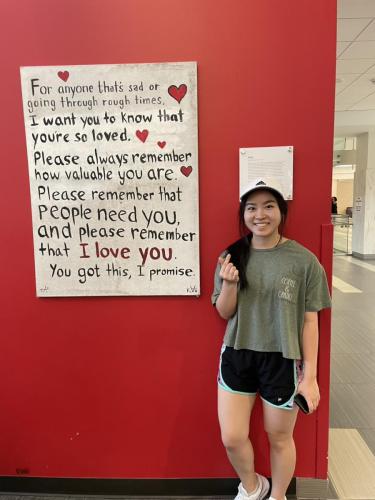 For anyone that's sad or
going through rough times,
I want you to know that
you're so loved.
Please always remember
how valuable you are.
Please remember that
PEOPLE NEED YOU,
and please remember
that I love you.
You got this, I promise.